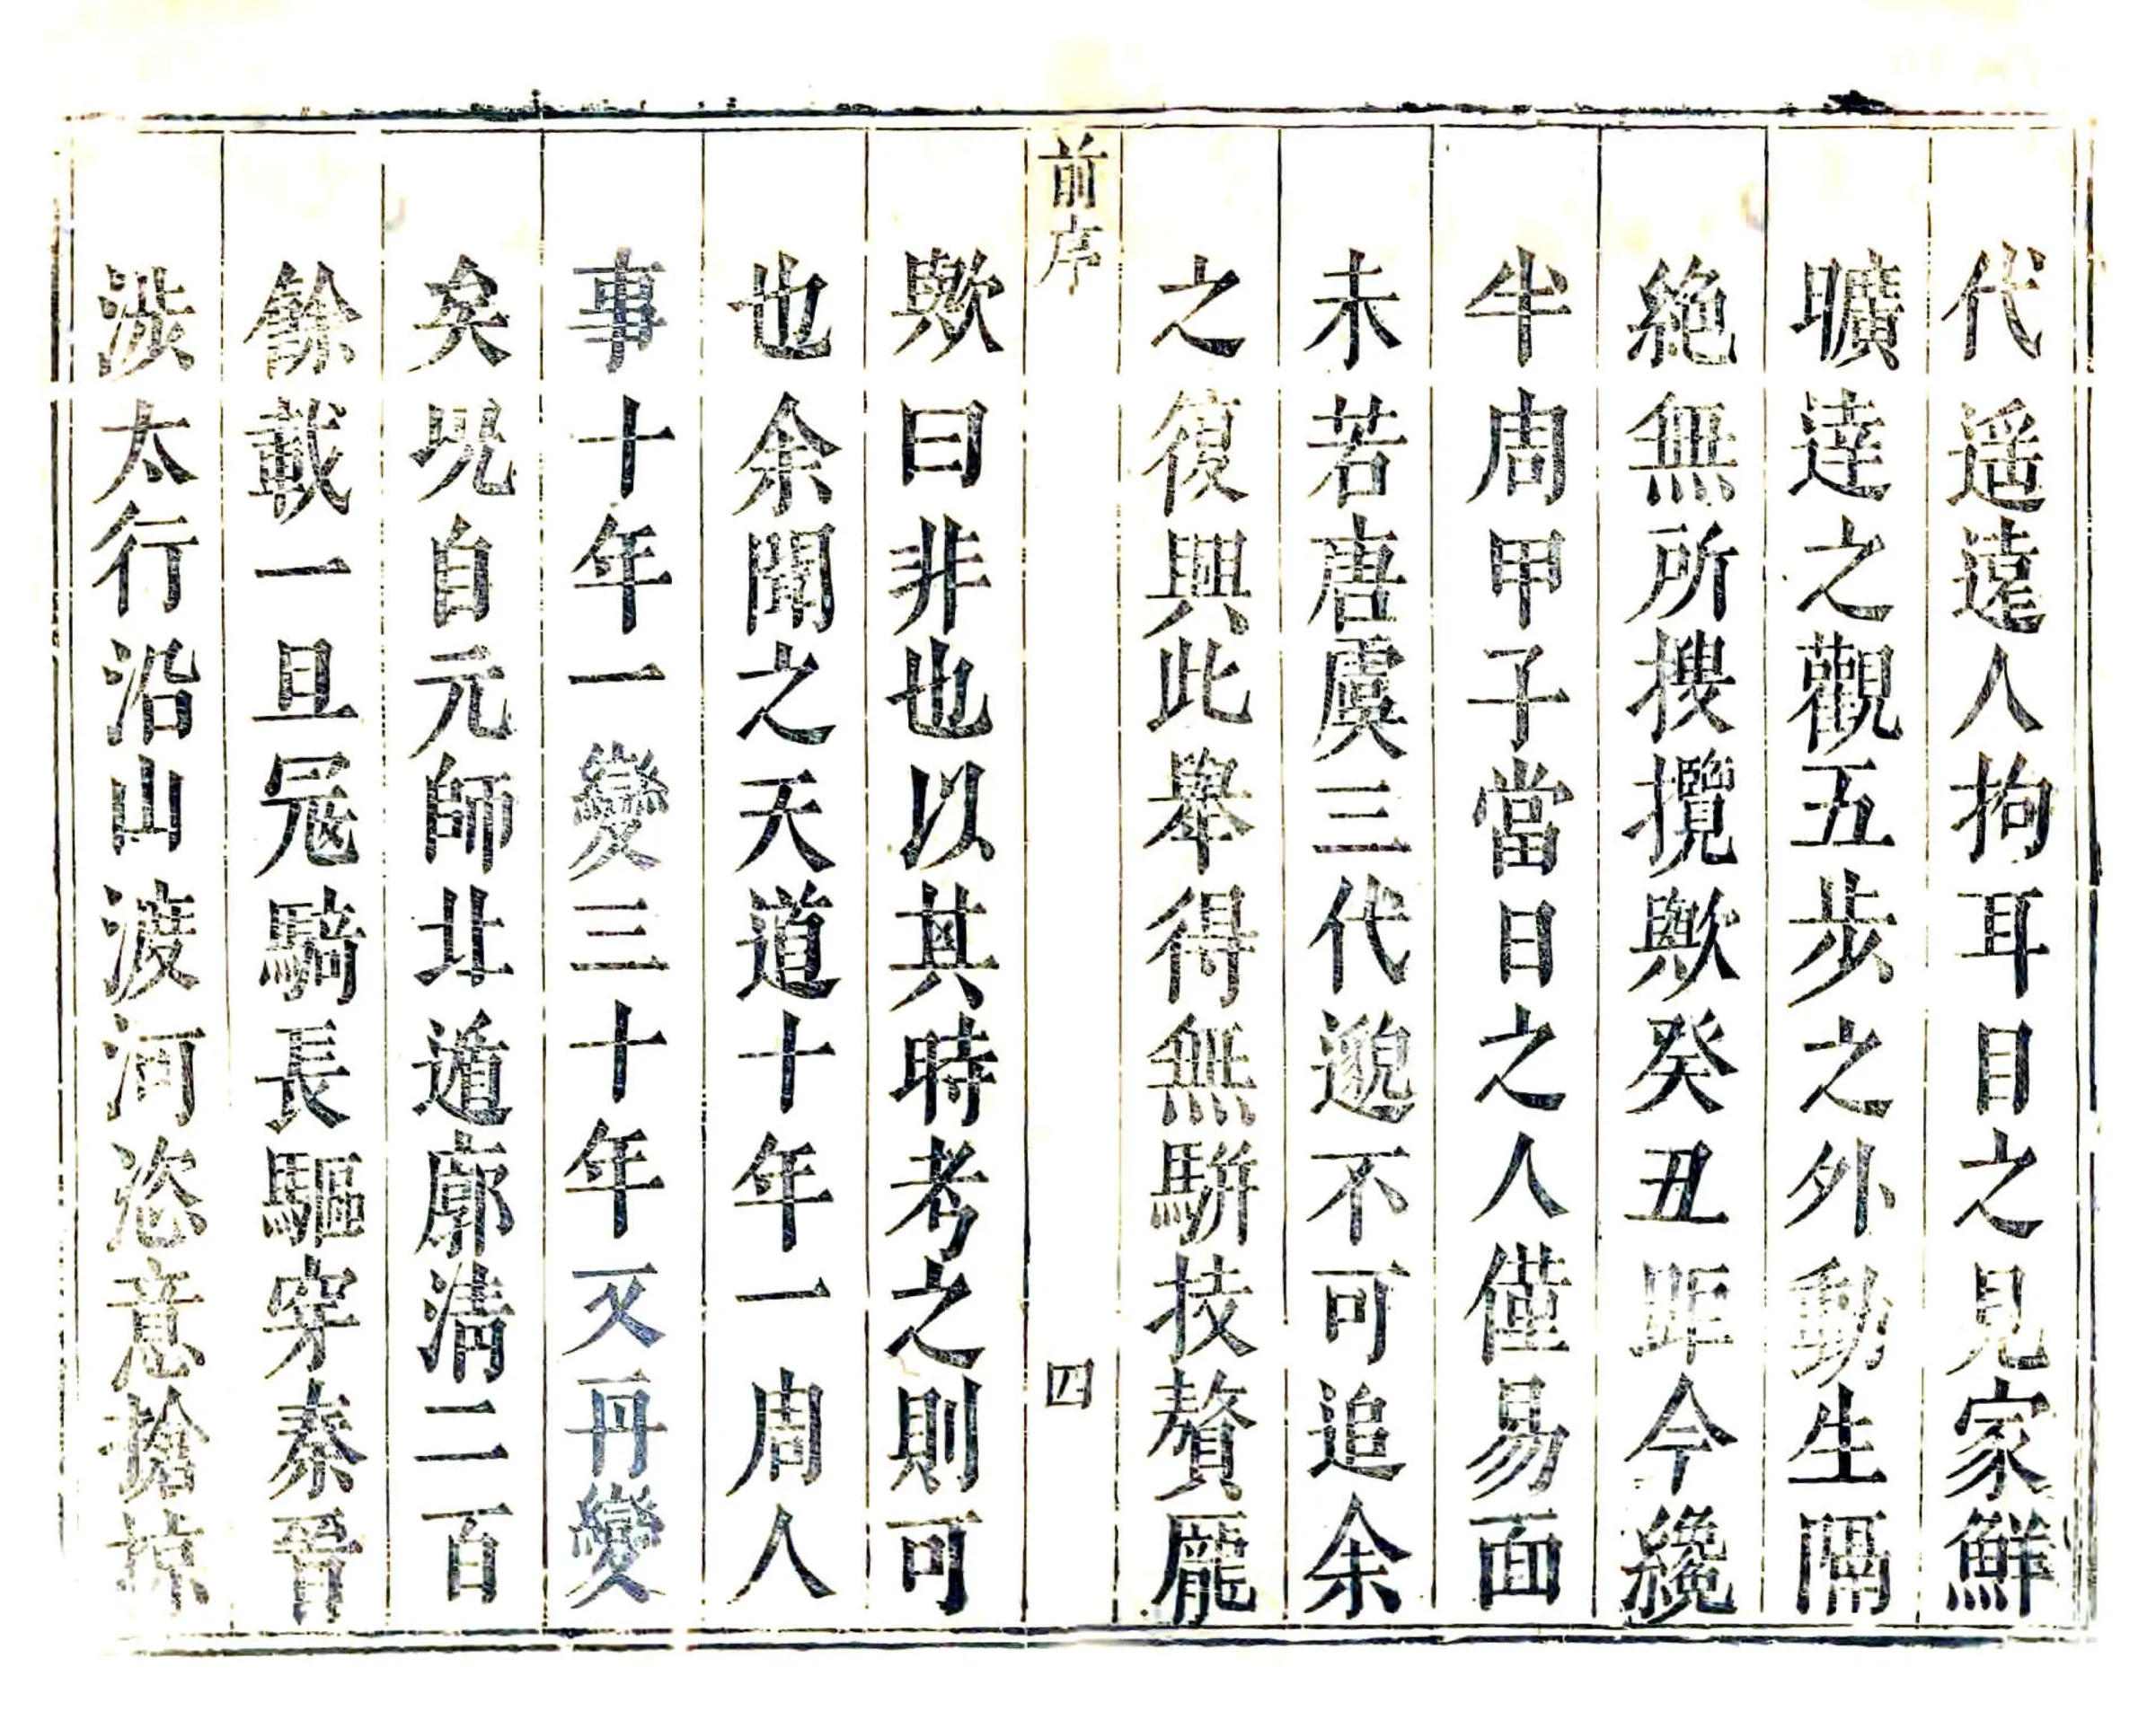 代遥遠人拘耳目之見家鮮
曠達之觀五步之外動生隔
絶無所搜攬歟癸丑距今纔
半周甲子當日之人僅易面
未若唐虞三代邈不可追余
之復興此舉得無駢技贅龐
前序
四
歟曰非也以其時考之則可
也余聞之天道十年一周人
事十年一變三十年又再變
矣况自元師北遁廓清二百
餘載一旦冦騎長驅穿秦晉
涉太行沿山渡河恣意搶掠